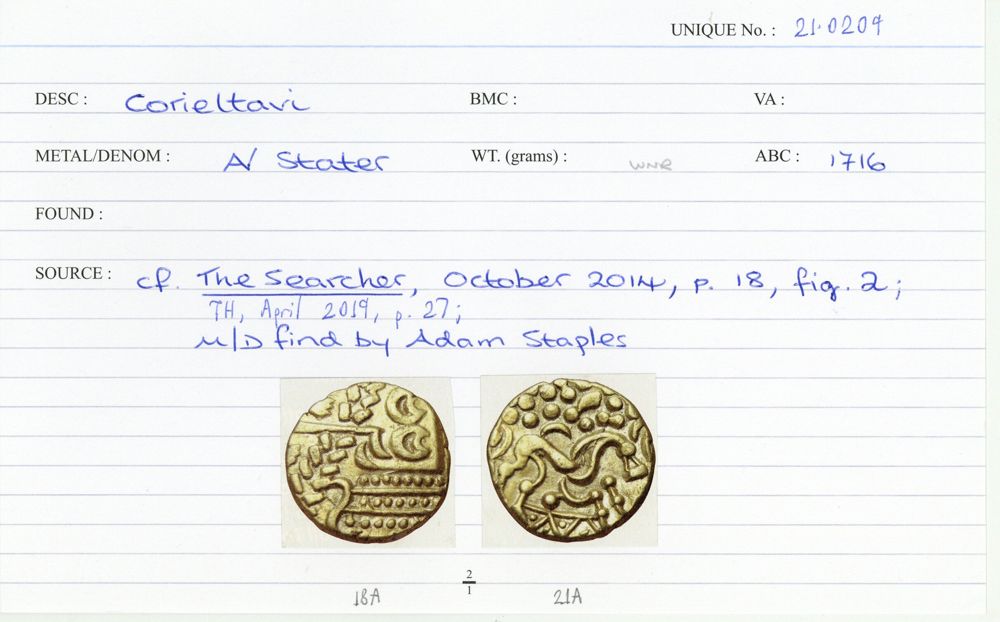 UNIQUE No. : 21.0209
DESC : Corieltavi BMC : VA :
METAL/DENOM : A/ Stater WT. (grams) : WNR ABC : 1716
FOUND :
SOURCE : cf. The Searcher, October 2014, p. 18, fig. 2;
TH, April 2019, p. 27;
M/D find by Adam Staples
2/1
18A 21A